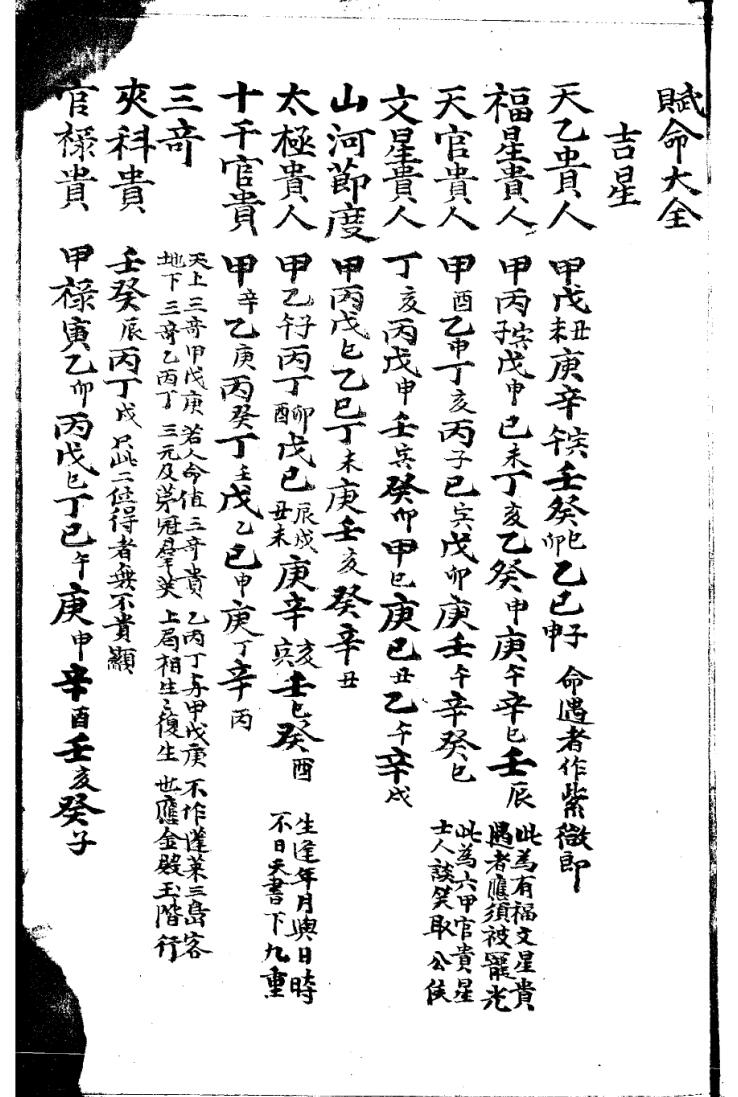 賦命大全
吉星
天乙貴人 甲戊丑未庚辛午寅壬癸巳卯乙己申子 命遇者作紫微郎
福星貴人 甲丙子寅戊申己未丁亥乙癸申庚午辛巳壬辰 此為有福文星貴 遇者應須被寵光
天官貴人 甲酉乙申丁亥丙子己寅戊卯庚壬午辛癸巳 此為六甲官貴星 士人談笑取公侯
文星貴人 丁亥丙戊申壬寅癸卯甲巳庚己丑乙午辛戌
山河節度 甲丙戊巳乙己丁未庚壬亥癸辛丑
太極貴人 甲乙午子丙丁卯酉戊己辰戌丑未庚辛亥寅壬巳癸酉 生逢年月與日時 不日天書下九重
十干官貴 甲辛乙庚丙癸丁壬戊乙己申庚丁辛丙
三奇 天上三奇甲戊庚 地下三奇乙丙丁 若人命值三奇貴 三元及第冠羣英 乙丙丁与甲戊庚 上局相生〻復生 不作蓬萊三島客 也應金殿玉階行
夾科貴 壬癸辰丙丁戌只此二位得者無不貴顯
官祿貴 甲祿寅乙卯丙戊巳丁己午庚申辛酉壬亥癸子